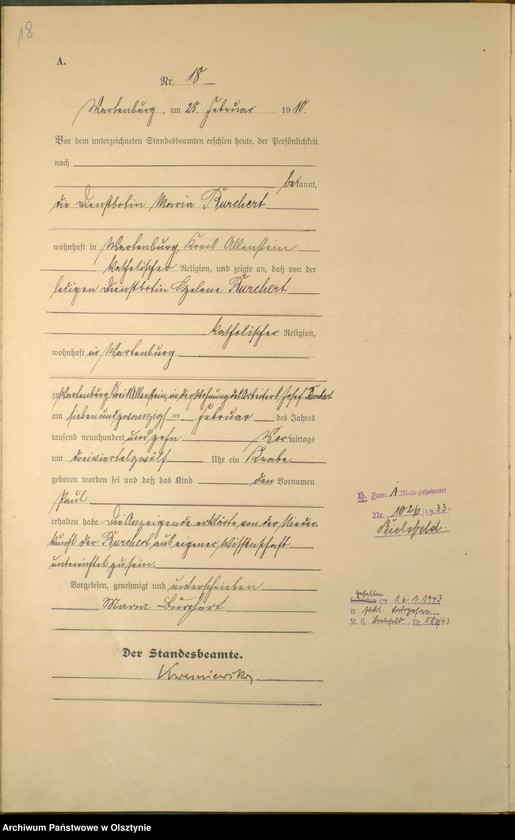 18
A.
Nr. 18
Wartenburg, am 28. Februar 1910.
Vor dem unterzeichneten Standesbeamten erschien heute, der Persönlichkeit
nach
bekannt,
die Dienstbotin Maria Burchert
wohnhaft in Wartenburg Kreis Allenstein
katholischer Religion, und zeigte an, daß von der
ledigen Dienstbotin Helene Burchert
katholischer Religion,
wohnhaft in Wartenburg
zu Wartenburg Kreis Allenstein, in der Wohnung des Arbeiters Josef
am siebenundzwanzigsten Februar des Jahres
tausend neunhundert und zehn Vormittags
um dreiviertelzwölf Uhr ein Knabe
geboren worden sei und daß das Kind den Vornamen
Paul
erhalten habe. Die Anzeigende erklärte von der Nieder-
kunft der Burchert aus eigener Wissenschaft
unterrichtet zu sein.
Vorgelesen, genehmigt und unterschrieben
Maria Burchert
Der Standesbeamte.
H. Zum 1 Male geheiratet
Nr. 1026/1933.
Bielefeld.
gefallen
am 1.1.1943
in
St. A. Bielefeld Nr.
Archiwum Państwowe w Olsztynie